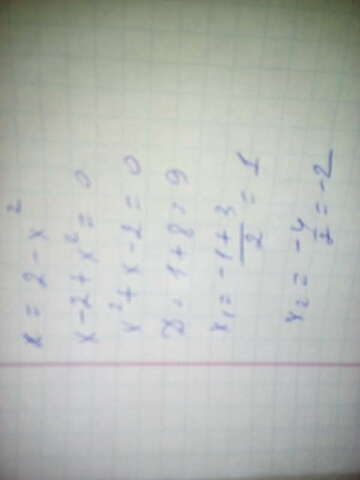 x = 2 - x²
x - 2 + x² = 0
x² + x - 2 = 0
D = 1 + 8 = 9
x₁ = (-1 + 3)/2 = 1
x₂ = -4/2 = -2